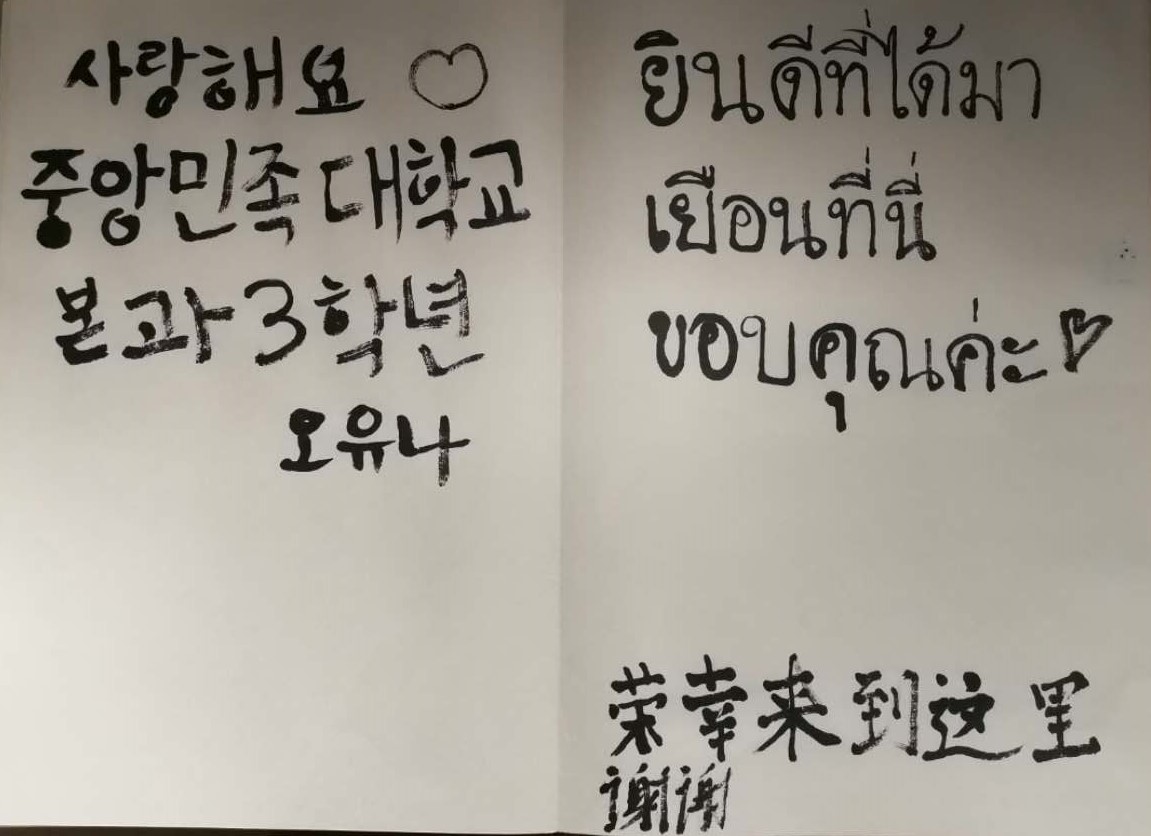 사랑해요 ♡
중앙민족대학교
본과 3학년
오유나
ยินดีที่ได้มา
เยือนที่นี่
ขอบคุณค่ะ♡
荣幸来到这里
谢谢